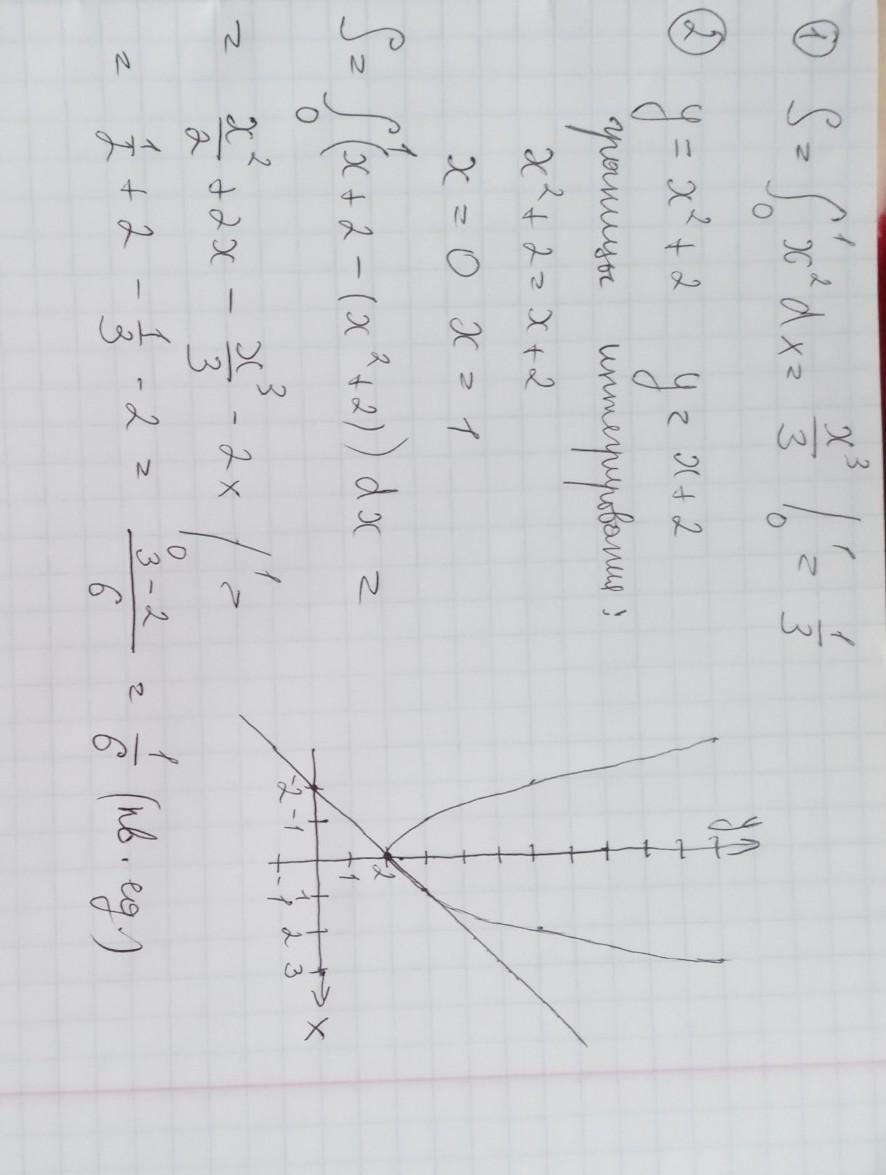 ① S = ∫₀¹ x² dx = x³/3 |₀¹ = 1/3
② y = x² + 2 y = x + 2
границы интегрирования:
x² + 2 = x + 2
x = 0 x = 1
S = ∫₀¹ (x + 2 - (x² + 2)) dx =
= x²/2 + 2x - x³/3 - 2x |₀¹ =
= 1/2 + 2 - 1/3 - 2 = (3 - 2)/6 = 1/6 (кв. ед.)
y
2
1
-2 -1 1 2 3 x
-1